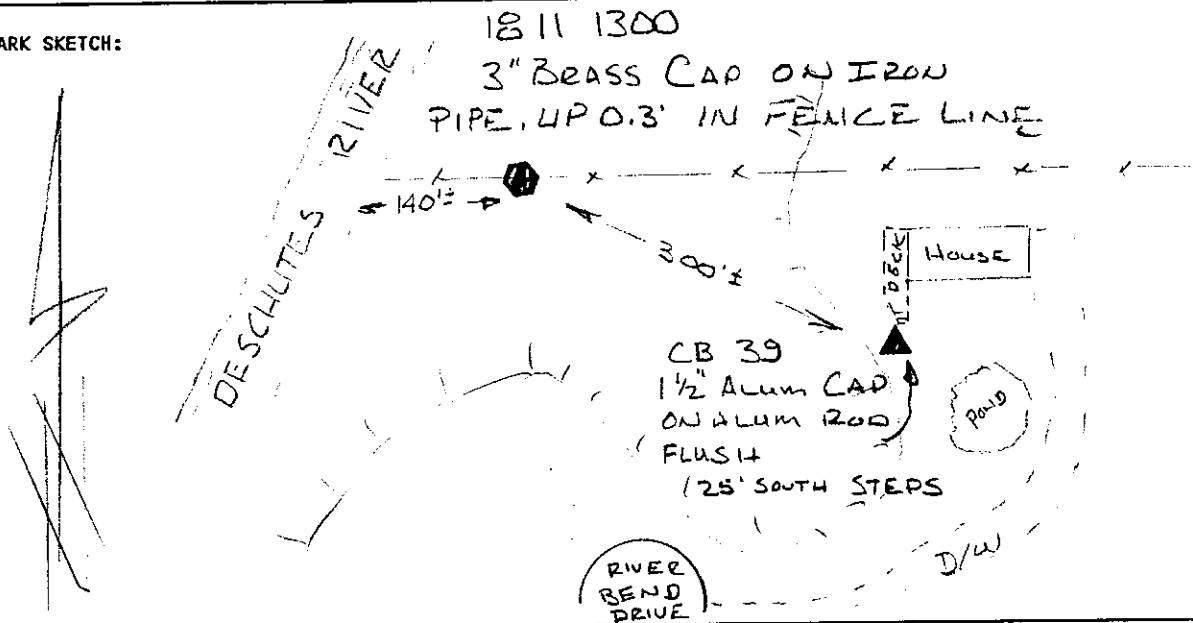 ARK SKETCH:
18 11 1300
3" BRASS CAP ON IRON
PIPE, UP 0.3' IN FENCE LINE
DESCHUTES RIVER
140'±
300'±
DECK
HOUSE
CB 39
1½" ALUM CAP
ON ALUM ROD
FLUSH
POND
SOUTH STEPS
D/W
RIVER
BEND
DRIVE